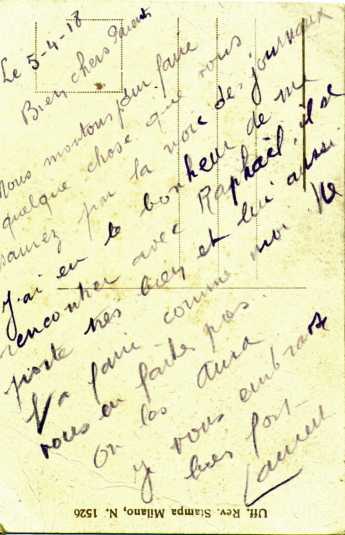 Le 5-4-18
Bien chers Parents
Nous montons pour faire
quelque chose que vous
saurez par la voie des journaux
J'ai eu le bonheur de me
rencontrer avec Raphaël, il se
porte très bien et lui aussi
Va faire comme moi Ne
vous en faites pas
On les aura
Je vous embrasse
bien fort
Laurent
Uff. Rev. Stampa Milano, N. 1526